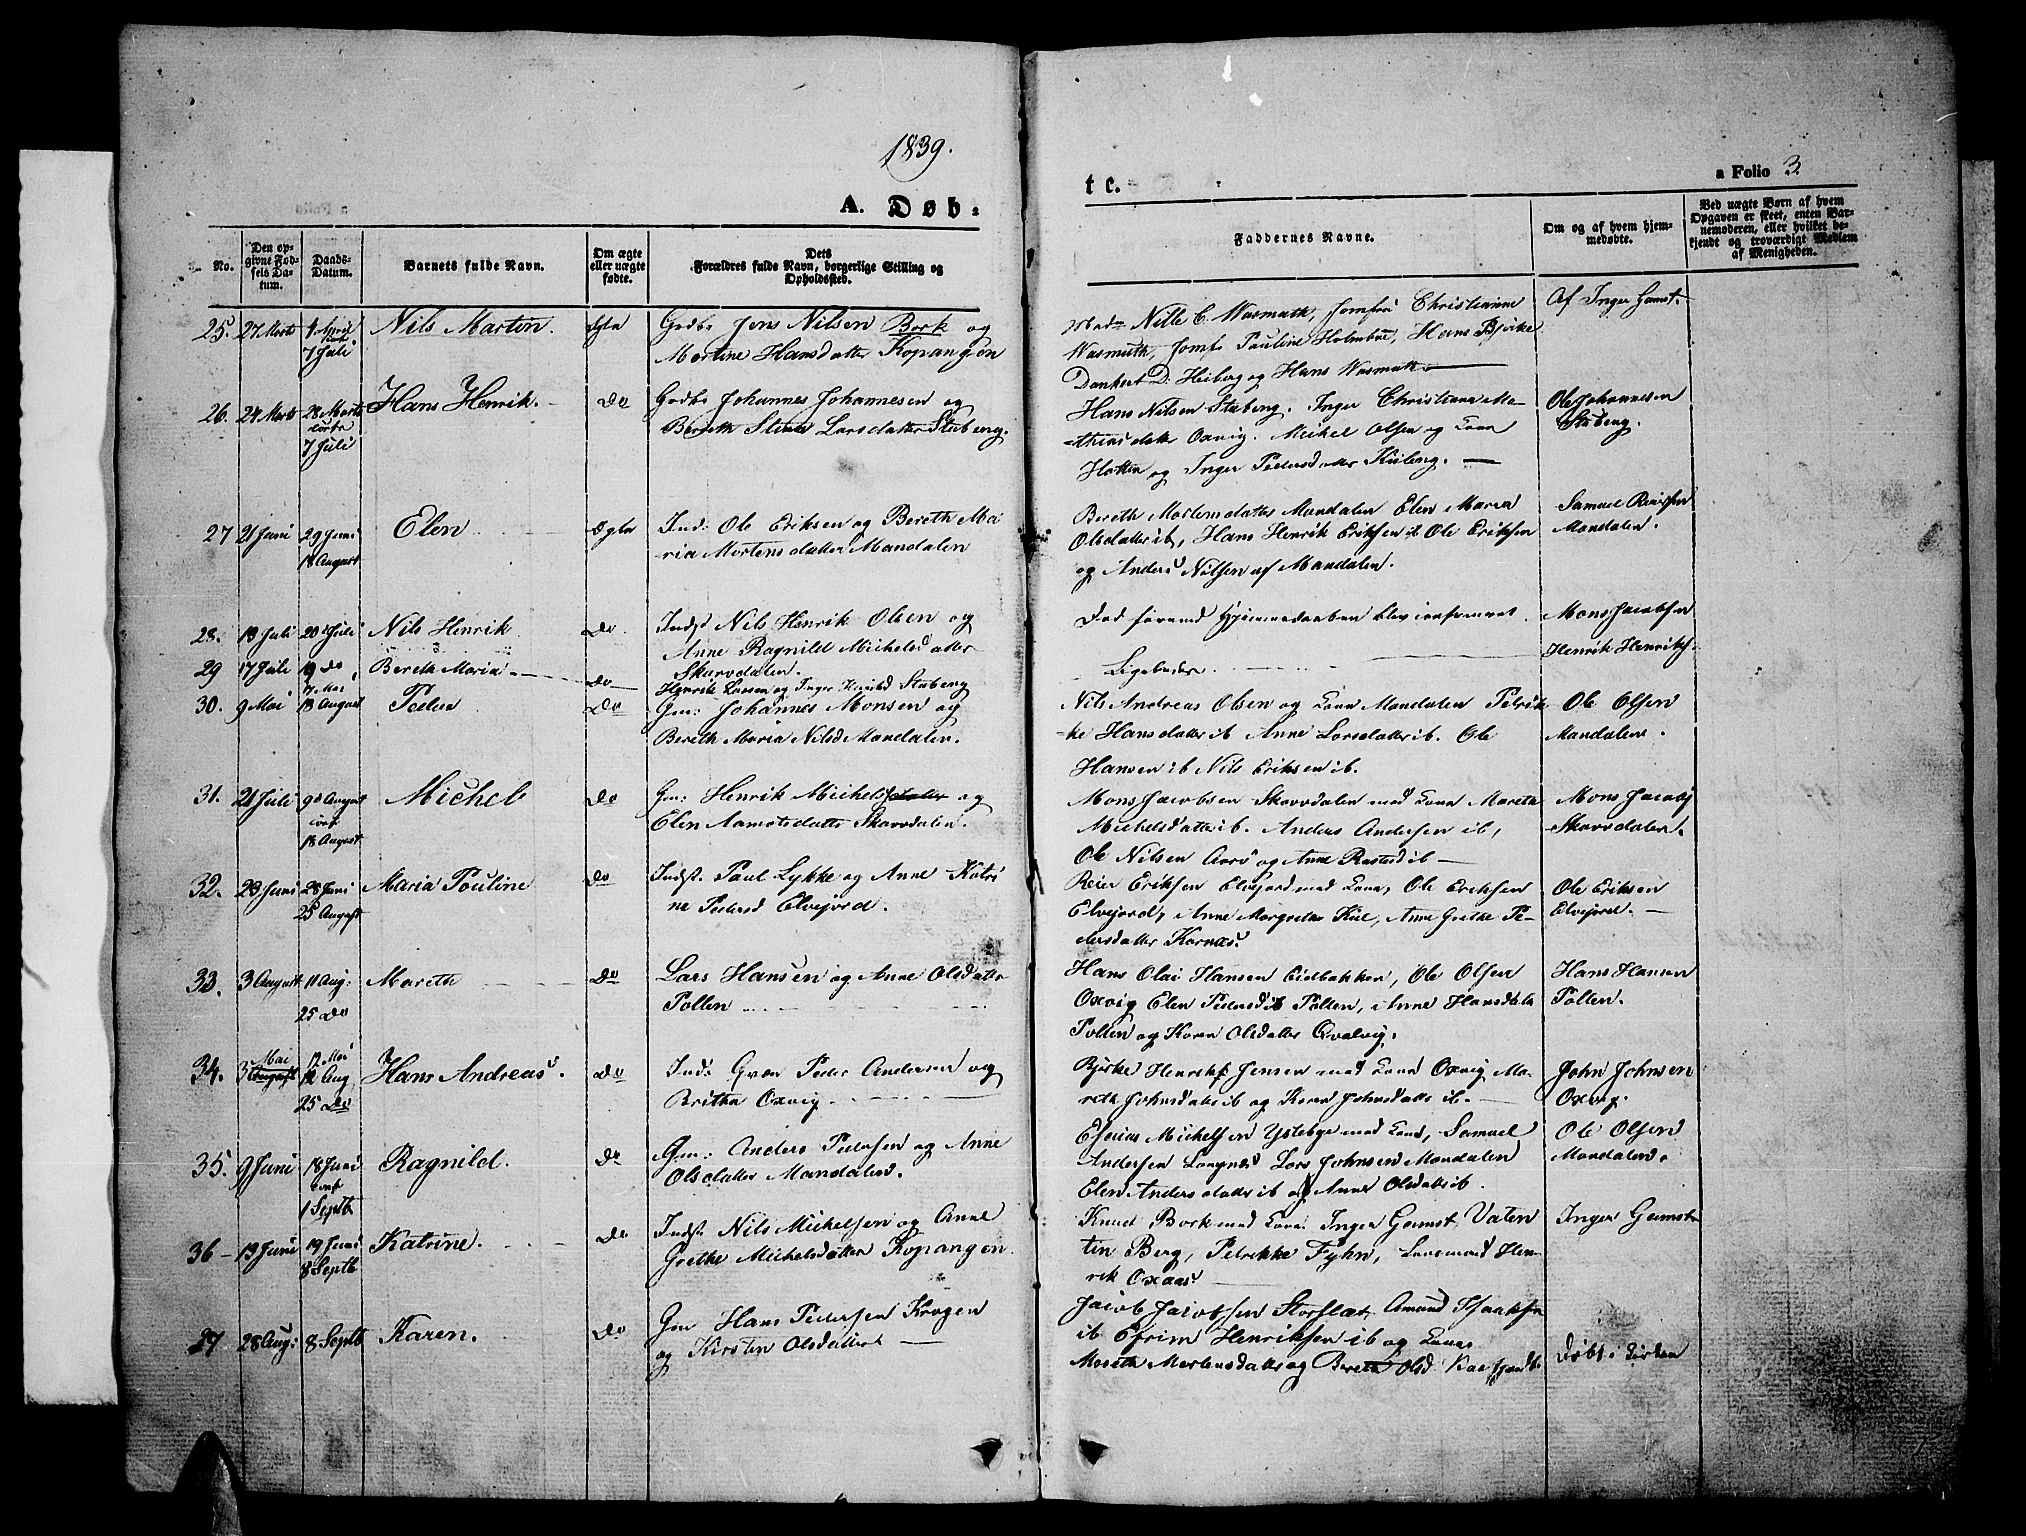 1839.
A. Døb-
No.
Den opgivne Fødsels Datum.
Daabs-Datum.
Barnets fulde Navn.
Om ægte eller uægte fødte.
Dets Forældres fulde Navn, borgerlige Stilling og Opholdssted.
25. 27 Marts 1 April 7 Juli Nils Martin. Ægte Grdbr Jens Nilsen Bork og
Martine Hansdatter Kopangen
26. 24 Marts 28 Marts 7 Juli Hans Henrik. Do Grdbr Johannes Johannesen og
Bereth Stina Larsdatter Stubeng.
27 21 Juni 29 Juni 18 August Elen Ægte Ind: Ole Eriksen og Bereth Ma
ria Mortensdatter Mandalen
28. 19 Juli 20 Juli Nils Henrik Do. Indst Nils Henrik Olsen og
Anne Ragnild Michelsdatter
Skarvdalen.
29 17 Juli 19 do Bereth Maria Do Henrik Larsen og Inger Stubeng
30. 9 Mai 7 Mai 18 August Peder Do Gm: Johannes Monsen og
Bereth Maria Nilsd Mandalen.
31. 21 Juli 9de August conf 18 August Michel Do Gm: Henrik Michelsdatter og
Elen Aamotsdatter Skarvdalen.
32. 23 Juni 28 Juni 25 August Maria Pouline Do Indst. Paul Lykke og Anne Katri
ne Pedersd Elvejord.
33. 3 August 11 Aug: 25 Do Mareth Do Lars Hansen og Anne Olsdatter
Pollen
34. 3 Mai August 12 Mai 12 Aug 25 Do Hans Andreas. Do Ind: Qvæn Peder Andersen og
Britha Oxvig
35. 9 Juni 18 Juni conf 1 Septb Ragnild. Do Gm: Anders Pedersen og Anne
Olsdatter Mandalen.
36 13 Juni 19 Juni 8 Septb Katrine. Do Indst. Nils Michelsen og Anne
Grethe Michelsdatter Kopangen.
37 28 Aug: 8 Septb Karen. Do Gm Hans Pedersen Krogen
og Kirsten Olsdatter
t e.
a Folio 3
Faddernes Navne.
Om og af hvem hjemmedøbte.
Ved uægte Børn af hvem Opgaven er skeet, enten Barnemoderen, eller hvilket bekjendt og troværdigt Medlem af Menigheden.
Mad: Nille C. Wasmuth, Jomfru Christianne Af Inger Gamst.
Wasmuth, Jomfr Pauline Holmboe, Hans Bjerke
Dankert D. Heiberg og Hans Wasmuth
Hans Nilsen Stubeng. Inger Christiana Ma- Ole Johannesen
thiasdatter Oxvig. Michel Olsen og Kone Stubeng.
Hatten og Inger Pedersdatter Kileng.
Bereth Mortensdatter Mandalen Elen Maria Samuel
Olsdatter ib, Hans Henrik Eriksen ib Ole Eriksen Mandalen.
og Anders Nilsen af Mandalen.
Død førend Hjemmedaaben blev confirmeret. Mons Jacobsen
Ligeledes Henrik Henriks.
Nils Andreas Olsen og Kone Mandalen Petrik Ole Olsen
ke Hansdatter ib Anne Larsdatter ib. Ole Mandalen.
Hansen ib Nils Eriksen ib.
Mons Jacobsen Skarvdalen med Kone Mareth Mons Jacobs
Michelsdatter ib. Anders Andersen ib, Skarvdalen.
Ole Nilsen og Anne ib
Reier Eriksen Elvejord med Kone, Ole Eriksen Ole Eriksen
Elvejord, Anne Margrethe Kiil, Anne Grethe Pe- Elvejord.
dersdatter Kornæs.
Hans Olai Hansen Eidbakken, Ole Olsen Hans Hansen
Oxvig Elen Pedersd ib Pollen, Anne Hansdatr Pollen.
Pollen og Karen Olsdatter Qvalvig.
Bjerke Henrik Jensen med Kone Oxvig Ma- John Johnsen
reth Johnsdatter ib og Karen Johnsdatter ib. Oxvig.
Esaias Michelsen Ystebye med Kone, Samuel Ole Olsen
Andersen Langnes Lars Johnsen Mandalen Mandalen.
Elen Andersdatter ib og Anne Olsdatter ib.
Knud Bork med Kone Inger Gamst, Valen Inger Gamst
tin Berg, Petrikke Fyhn, Hen-
rik Oxaas
Jacob Jacobsen Storslat, Amund Isaaksen
ib Efrim Henriksen ib og Kones
Mareth Mortensdatter og Bereth Olsd. Døbt i Kirken